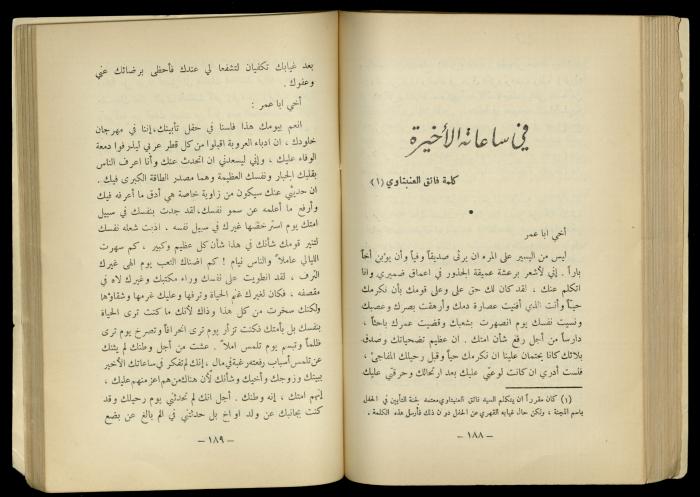 في ساعاته الأخيرة
كلمة فائق العنبتاوي (١)
أخي ابا عمر
ليس من اليسير على المرء ان يرثي صديقاً وفياً وأن يؤبن أخاً
باراً . إني لأشعر برعشة عميقة الجذور في اعماق ضميري وانا
اتكلم عنك ، لقد كان لك حق علي وعلى قومك بأن نكرمك
حياً وانت الذي أفنيت عصارة دمك وأرهقت بصرك وعصبك
ونسيت نفسك يوم انصهرت بشعبك وقضيت عمرك باحثاً ،
دارساً من أجل رفع شأن امتك . ان عظيم تضحياتك وصدق
بلائك كانا يحتمان علينا ان نكرمك حياً وقبل رحيلك المفاجىء ،
فلست أدري ان كانت لوعتي عليك بعد ارتحالك وحرقتي عليك
(١) كان مقرراً ان يتكلم السيد فائق العنبتاوي معتمد لجنة التأبين في الحفل
باسم اللجنة ، ولكن حال غيابه القهري عن الحفل دون ذلك فأرسل هذه الكلمة .
- ١٨٨ -
بعد غيابك تكفيان لتشفعا لي عندك فأحظى برضائك عني
وعفوك .
أخي ابا عمر :
انعم بيومك هذا فلسنا في حفل تأبينك، إننا في مهرجان
خلودك ، ان ادباء العروبة اقبلوا من كل قطر عربي ليذرفوا دمعة
الوفاء عليك ، وإني ليسعدني ان اتحدث عنك وأنا اعرف الناس
بقلبك الجبار ونفسك العظيمة وهما مصدر الطاقة الكبرى فيك .
ان حديثي عنك سيكون من زاوية خاصة هي أدق ما أعرفه فيك
وأرفع ما أعلمه عن سمو نفسك، لقد جدت بنفسك في سبيل
امتك يوم استرخصها غيرك في سبيل نفسه . اذبت شعله نفسك
لتنير قومك شأنك في هذا شأن كل عظيم وكبير ، كم سهرت
الليالي عاملاً والناس نيام ! كم اضناك التعب يوم الهى غيرك
الترف ، لقد انطويت على نفسك وراء مكتبك وغيرك لاه في
مقصفه ، فكان لغيرك غنم الحياة وترفها وعليك غرمها وشقاؤها
ولكنك سخرت من كل هذا وذاك لأنك ما كنت ترى الحياة
بنفسك بل بأمتك فكنت تزأر يوم ترى انحرافاً وتصرخ يوم ترى
ظلماً وتبسم يوم تلمس املاً . عشت من أجل وطنك لم يثنك
عن تلمس أسباب رفعته رغبة في مال ، إنك لم تفكر في ساعاتك الأخير
ببيتك وزوجك وأخيك وشأنك لأن هناك من هم اعز منهم عليك ،
إنهم امتك ، إنه وطنك . أجل انك لم تحدثني يوم رحيلك وقد
كنت بجانبك عن ولد او اخ بل حدثتني في الم بالغ عن بضع
- ١٨٩ -